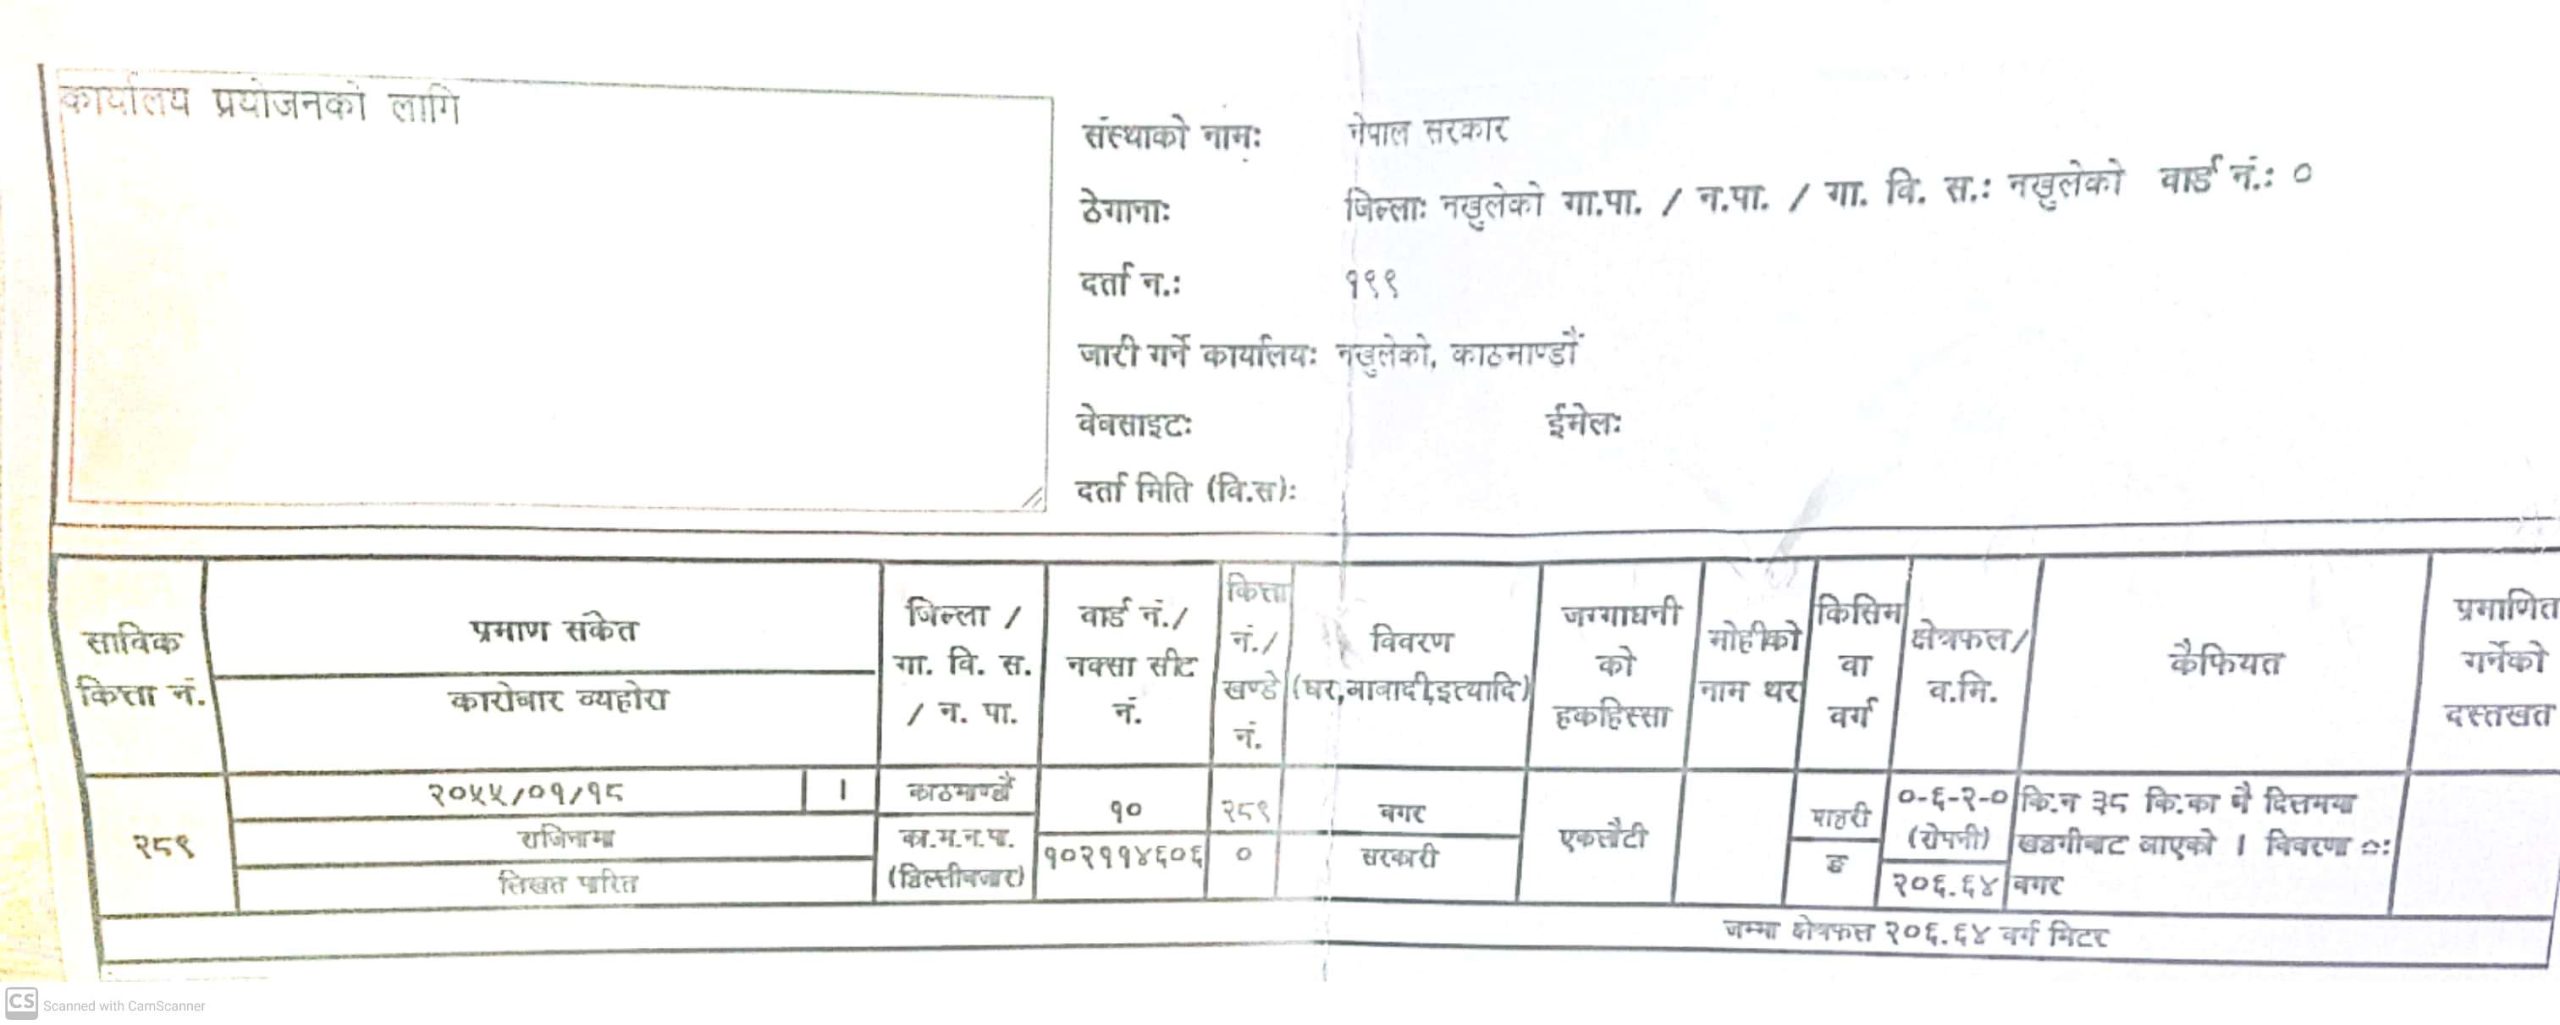 कार्यालय प्रयोजनको लागि
संस्थाको नाम: नेपाल सरकार
ठेगाना: जिल्ला: नखुलेको गा.पा. / न.पा. / गा. वि. स.: नखुलेको वार्ड नं.: ०
दर्ता न.: १९९
जारी गर्ने कार्यालय: नखुलेको, काठमाण्डौं
वेबसाइट: ईमेल:
दर्ता मिति (वि.स):
साविक कित्ता नं.
प्रमाण संकेत
कारोबार व्यहोरा
जिल्ला / गा. वि. स. / न. पा.
वार्ड नं./ नक्सा सीट नं.
कित्ता नं./ खण्डे नं.
विवरण (घर,आवादी,इत्यादि)
जग्गाधनी को हकहिस्सा
मोहीको नाम थर
किसिम वा वर्ग
क्षेत्रफल/ व.मि.
कैफियत
प्रमाणित गर्नेको दस्तखत
२८९
२०५५/०१/१८ ।
राजिनामा
लिखत पारित
काठमाण्डौं
का.म.न.पा. (डिल्लीबजार)
१०
१०२११४६०६
२८९
०
बगर
सरकारी
एकलौटी
पाहरी
ङ
०-६-२-० (रोपनी)
२०६.६४
कि.न ३८ कि.का मै दिलमया
खडगीबाट आएको । विवरण :
बगर
जम्मा क्षेत्रफल २०६.६४ वर्ग मिटर
CS Scanned with CamScanner